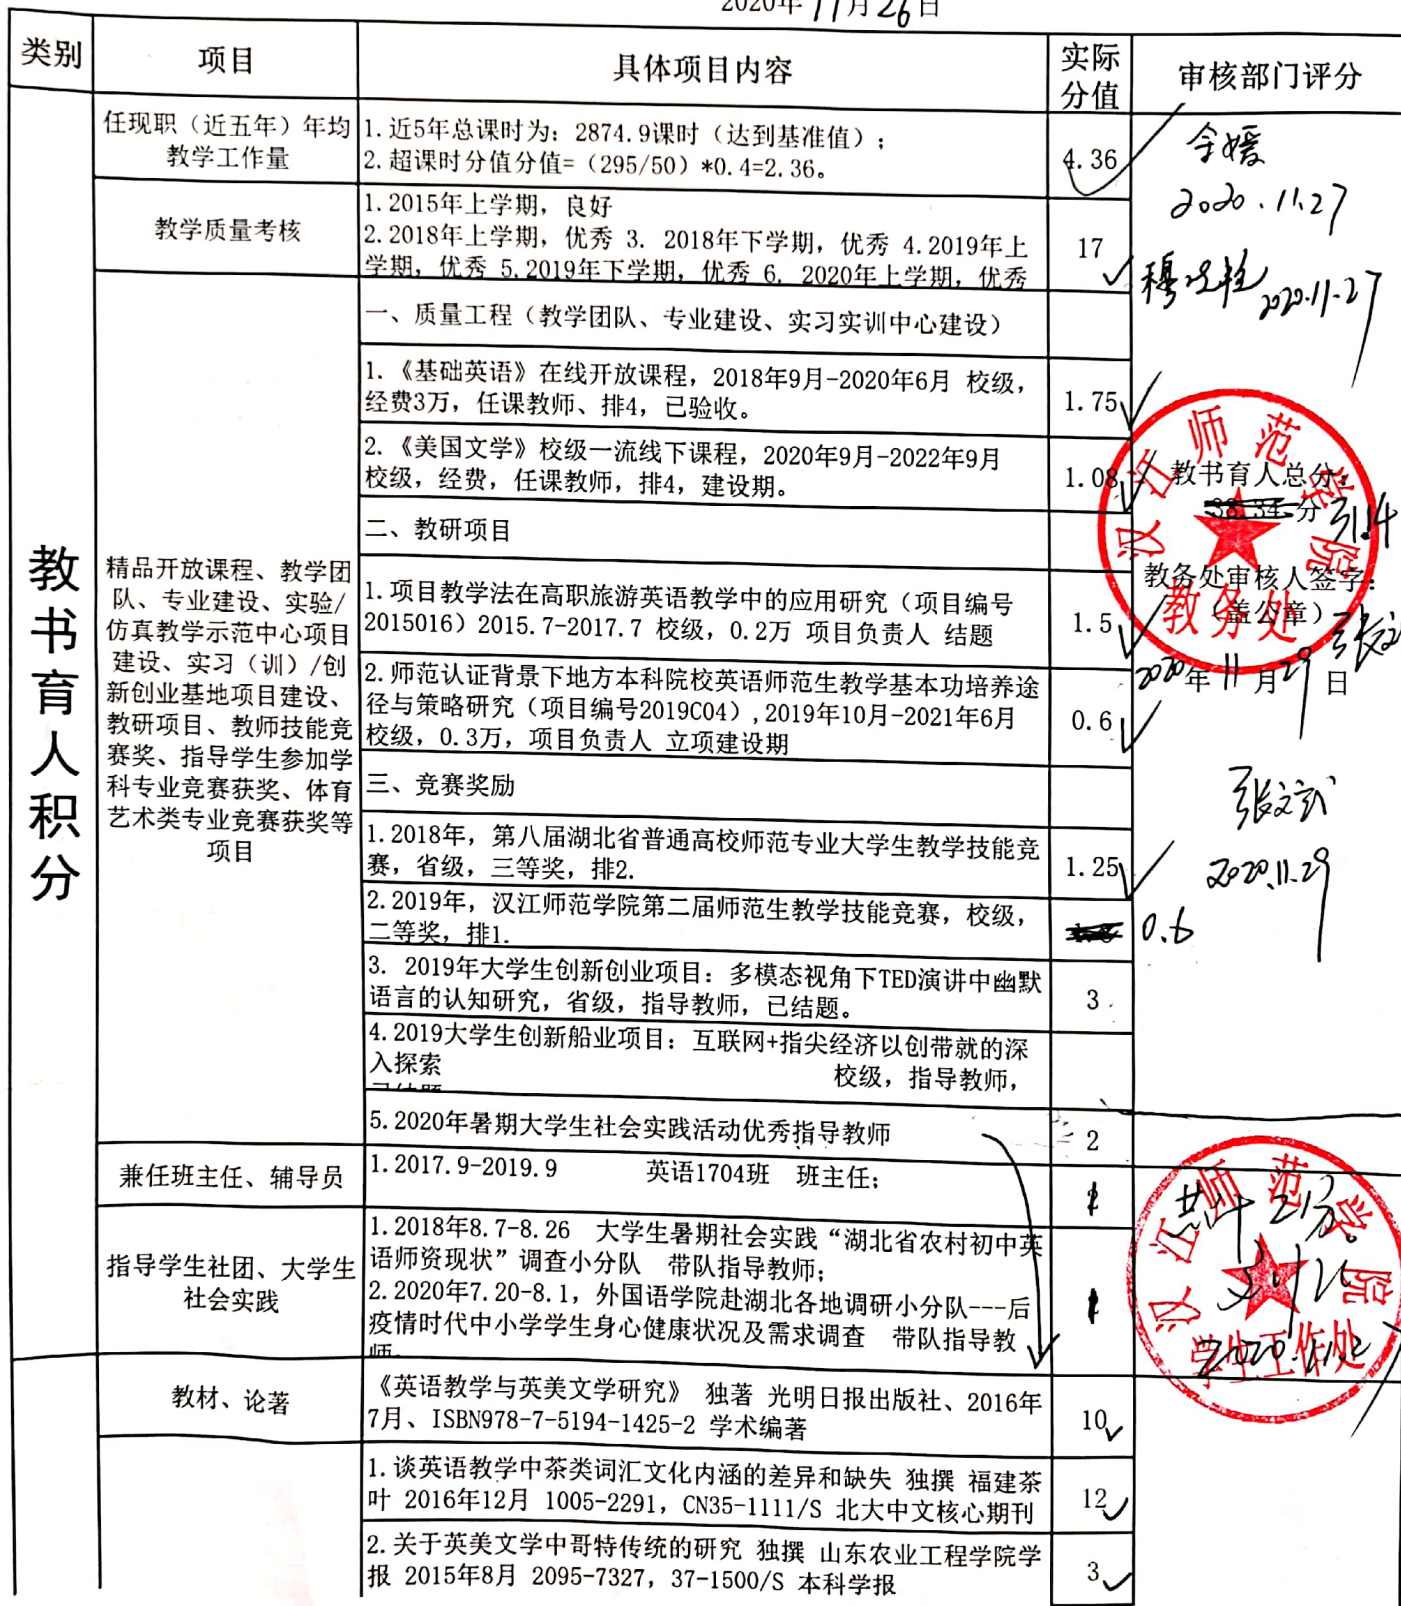 2020年11月26日
类别
项目
具体项目内容
实际
分值
审核部门评分
教书育人积分
任现职（近五年）年均
教学工作量
1.近5年总课时为：2874.9课时（达到基准值）；
2.超课时分值分值=（295/50）*0.4=2.36。
4.36
2020.11.27
教学质量考核
1.2015年上学期，良好
2.2018年上学期，优秀 3. 2018年下学期，优秀 4.2019年上
学期，优秀 5.2019年下学期，优秀 6. 2020年上学期，优秀
17
2020.11.27
精品开放课程、教学团
队、专业建设、实验/
仿真教学示范中心项目
建设、实习（训）/创
新创业基地项目建设、
教研项目、教师技能竞
赛奖、指导学生参加学
科专业竞赛获奖、体育
艺术类专业竞赛获奖等
项目
一、质量工程（教学团队、专业建设、实习实训中心建设）
1.《基础英语》在线开放课程，2018年9月-2020年6月 校级，
经费3万，任课教师、排4，已验收。
1.75
2.《美国文学》校级一流线下课程，2020年9月-2022年9月
校级，经费，任课教师，排4，建设期。
1.08
二、教研项目
1.项目教学法在高职旅游英语教学中的应用研究（项目编号
2015016）2015.7-2017.7 校级，0.2万 项目负责人 结题
1.5
2.师范认证背景下地方本科院校英语师范生教学基本功培养途
径与策略研究（项目编号2019C04）,2019年10月-2021年6月
校级，0.3万，项目负责人 立项建设期
0.6
三、竞赛奖励
1.2018年，第八届湖北省普通高校师范专业大学生教学技能竞
赛，省级，三等奖，排2.
1.25
2.2019年，汉江师范学院第二届师范生教学技能竞赛，校级，
二等奖，排1.
0.6
3. 2019年大学生创新创业项目：多模态视角下TED演讲中幽默
语言的认知研究，省级，指导教师，已结题。
3
4.2019大学生创新船业项目：互联网+指尖经济以创带就的深
入探索 校级，指导教师，
已结题
5.2020年暑期大学生社会实践活动优秀指导教师
2
汉江师范学院
教务处
教书育人总分：
38.34 分 31.14
教务处审核人签字：
（盖公章）
张文
2020年11月29日
张文武
2020.11.29
兼任班主任、辅导员
1.2017.9-2019.9 英语1704班 班主任；
指导学生社团、大学生
社会实践
1.2018年8.7-8.26 大学生暑期社会实践“湖北省农村初中英
语师资现状”调查小分队 带队指导教师；
2.2020年7.20-8.1，外国语学院赴湖北各地调研小分队---后
疫情时代中小学学生身心健康状况及需求调查 带队指导教
师。
汉江师范学院
学生工作处
共计2分
教材、论著
《英语教学与英美文学研究》 独著 光明日报出版社、2016年
7月、ISBN978-7-5194-1425-2 学术编著
10
1.谈英语教学中茶类词汇文化内涵的差异和缺失 独撰 福建茶
叶 2016年12月 1005-2291，CN35-1111/S 北大中文核心期刊
12
2.关于英美文学中哥特传统的研究 独撰 山东农业工程学院学
报 2015年8月 2095-7327，37-1500/S 本科学报
3